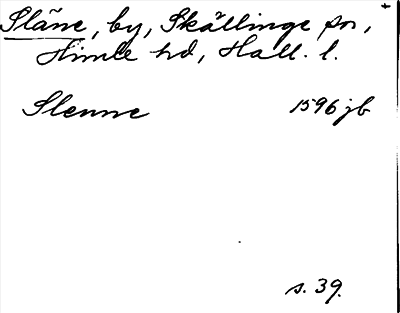 Släne, by, Skällinge sn,
Himle hd, Hall. l.
Slenne 1596 jb
s. 39.